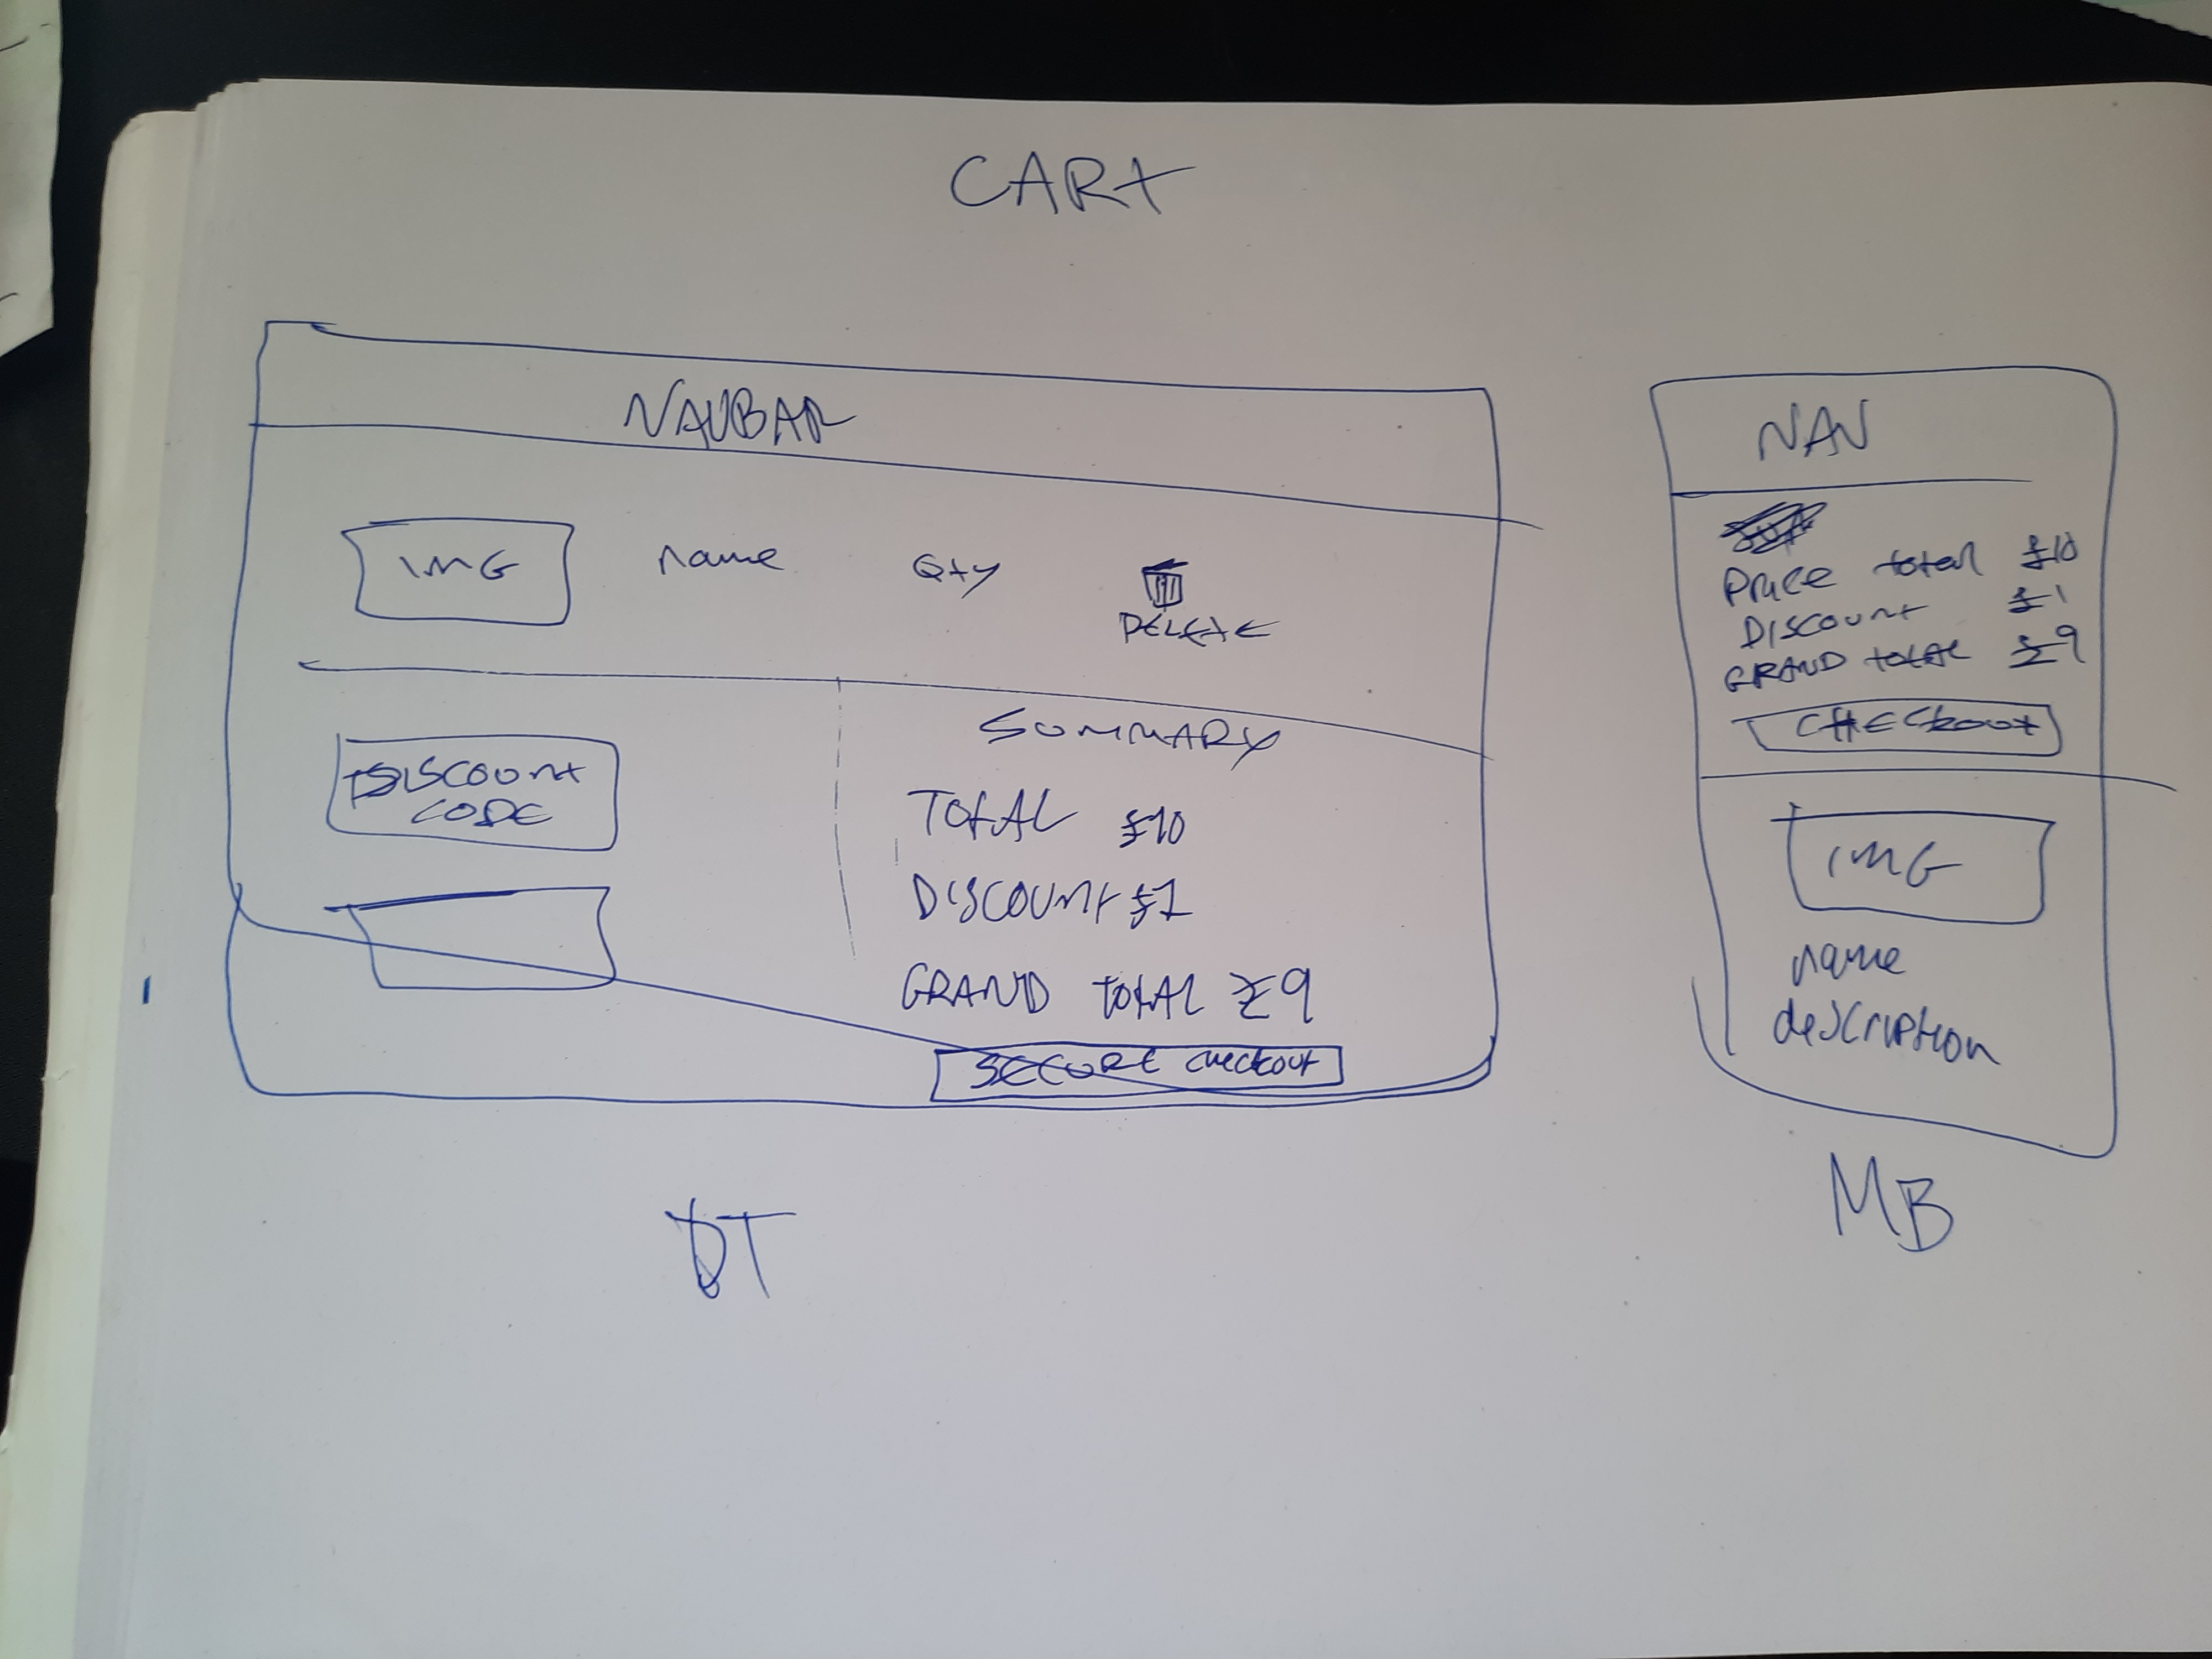 CART
NAVBAR
IMG name Qty
DELETE
DISCOUNT
CODE
SUMMARY
TOTAL £10
DISCOUNT £1
GRAND TOTAL £9
SECURE checkout
DT
NAV
Price total £10
DISCOUNT £1
GRAND total £9
CHECKout
IMG
name
description
MB